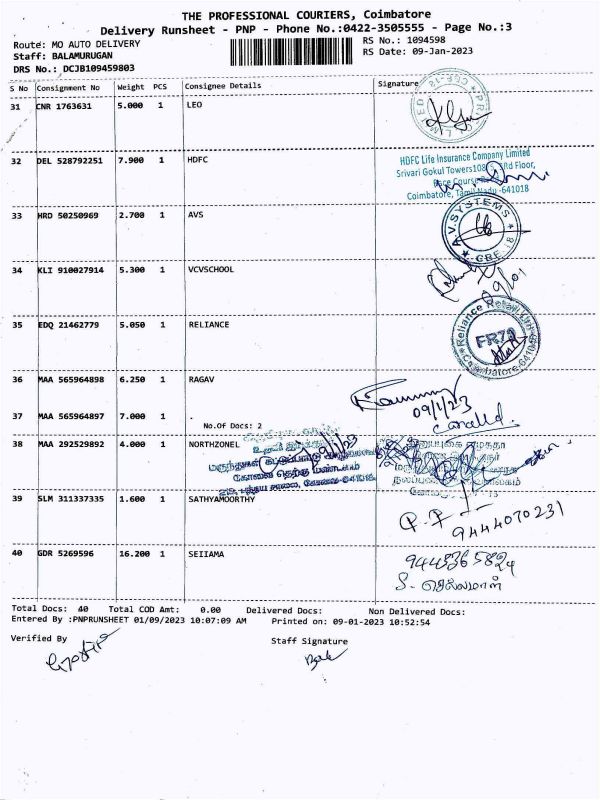 THE PROFESSIONAL COURIERS, Coimbatore
Delivery Runsheet - PNP - Phone No.:0422-3505555 - Page No.:3
Route: MO AUTO DELIVERY
RS No.: 1094598
Staff: BALAMURUGAN
RS Date: 09-Jan-2023
DRS No.: DCJB109459803
S No Consignment No Weight PCS Consignee Details Signature
31 CNR 1763631 5.000 1 LEO
32 DEL 528792251 7.900 1 HDFC
HDFC Life Insurance Company Limited
Srivari Gokul Towers108 Floor,
Race Course
Coimbatore, Tamil Nadu -641018
33 HRD 50250969 2.700 1 AVS
A.V.SYSTEMS
CBE-18
34 KLI 910027914 5.300 1 VCVSCHOOL
09/01
35 EDQ 21462779 5.050 1 RELIANCE
Reliance Retail Ltd
FR72
Coimbatore-641045
36 MAA 565964898 6.250 1 RAGAV
09/1/23
37 MAA 565964897 7.000 1 .
No.Of Docs: 2
38 MAA 292529892 4.000 1 NORTHZONEL
கோவை தெற்கு மண்டலம்
கோவை-641018
39 SLM 311337335 1.600 1 SATHYAMOORTHY
9444070231
40 GDR 5269596 16.200 1 SEIIAMA
9443365824
S. செல்லமாள்
Total Docs: 40 Total COD Amt: 0.00 Delivered Docs: Non Delivered Docs:
Entered By :PNPRUNSHEET 01/09/2023 10:07:09 AM Printed on: 09-01-2023 10:52:54
Verified By
Staff Signature